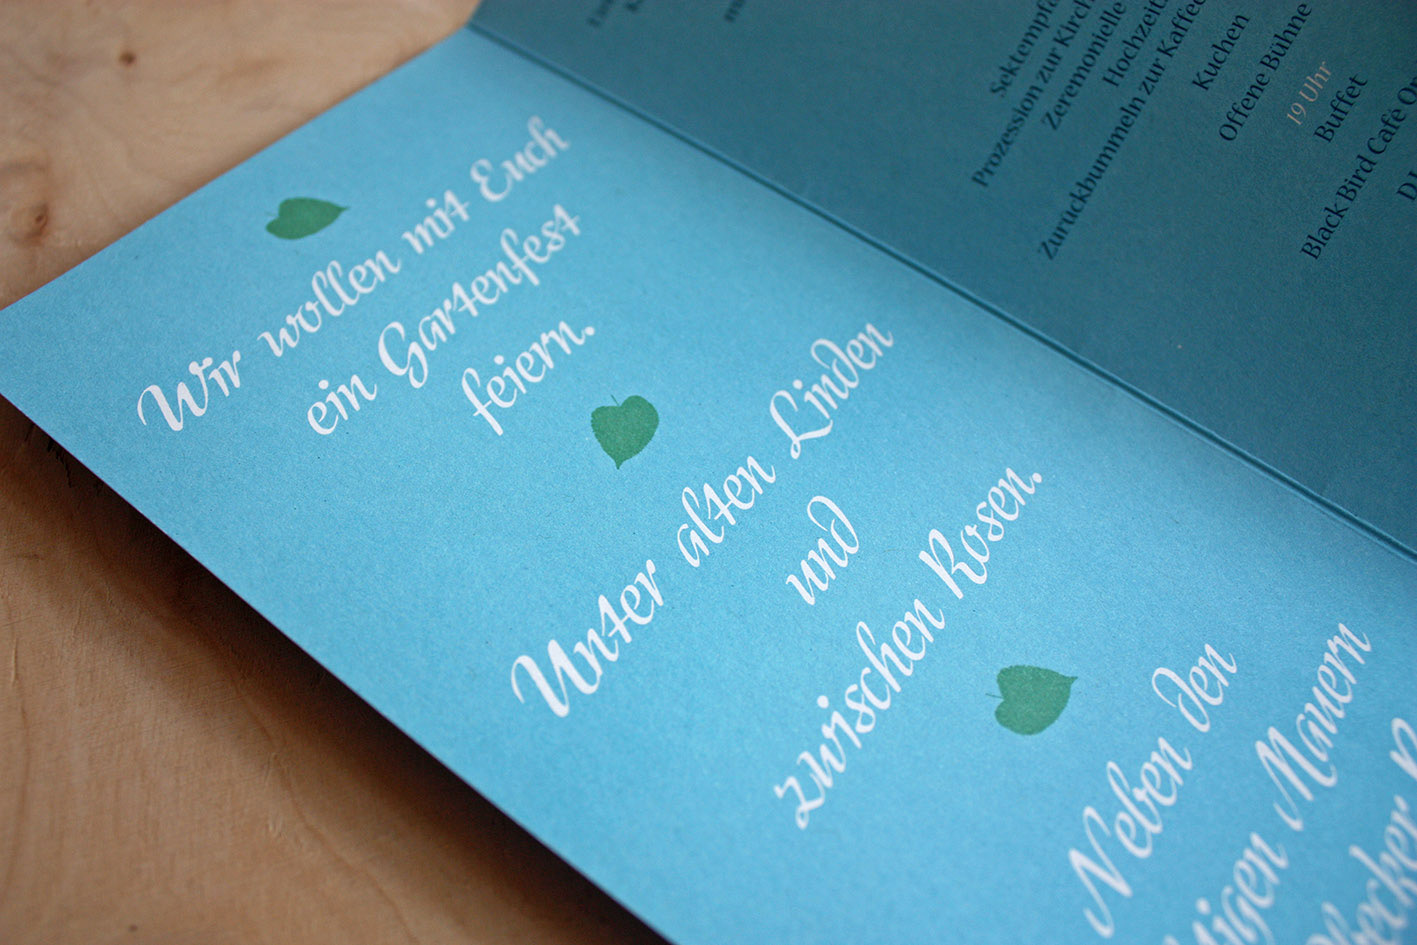 Wir wollen mit Euch
ein Gartenfest
feiern.
Unter alten Linden
und
zwischen Rosen.
Neben den
Mauern
Prozession zur
Zeremonielle
Zurückbummeln zur Kaffee
Kuchen
Offene Bühne
19 Uhr
Buffet
Black Bird Café